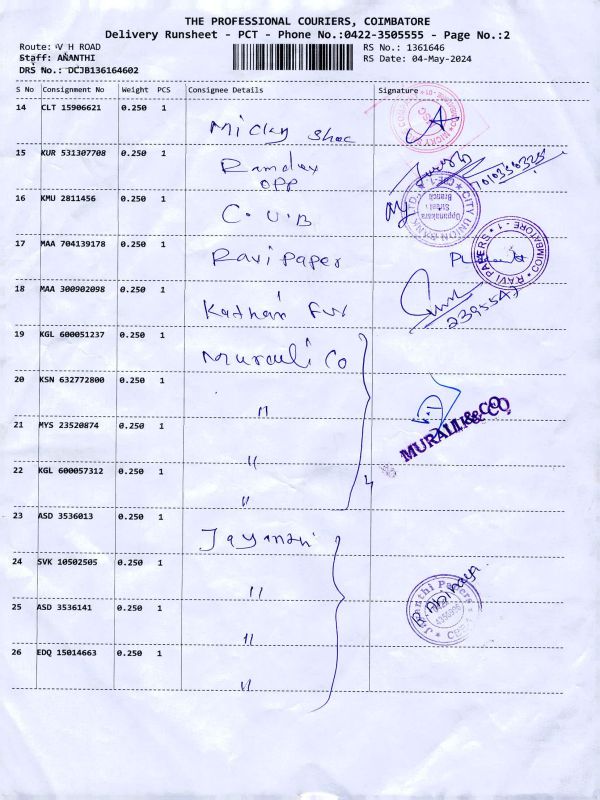 THE PROFESSIONAL COURIERS, COIMBATORE
Delivery Runsheet - PCT - Phone No.:0422-3505555 - Page No.:2
Route: V H ROAD
RS No.: 1361646
Staff: ANANTHI
RS Date: 04-May-2024
DRS No.: DCJB136164602
S No Consignment No Weight PCS Consignee Details Signature
14 CLT 15906621 0.250 1 Micky Shoe
15 KUR 531307708 0.250 1 Ramdev
OPP
16 KMU 2811456 0.250 1 C.U.B
CITY UNION BANK LTD.
Oppanakara
Street
Branch
17 MAA 704139178 0.250 1 Ravi Paper
RAVI PAPERS COIMBATORE - 1
18 MAA 300902098 0.250 1
19 KGL 600051237 0.250 1 Murauli Co
20 KSN 632772800 0.250 1 "
21 MYS 23520874 0.250 1 "
MURALI & CO
22 KGL 600057312 0.250 1 "
4
23 ASD 3536013 0.250 1 Jayanthi
24 SVK 10502505 0.250 1 "
25 ASD 3536141 0.250 1 "
Jayanthi Papers
Abinaya
26 EDQ 15014663 0.250 1 "